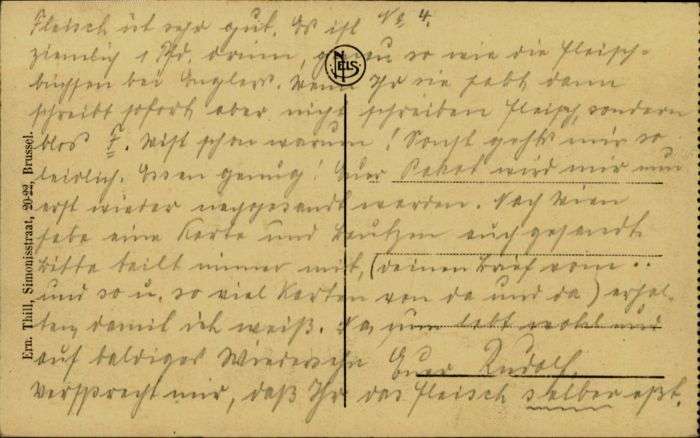 No 4.
Fleisch ist sehr gut. Es ist
ziemlich 1 Pfd. drinn, genau so wie die Fleisch-
büchsen bei Englers. Wenn Ihr sie habt dann
schreibt sofort aber nicht schreiben Fleisch, sondern
blos F. Wißt schon warum! Sonst gehts mir so
leidlich. Essen genug! Euer Paket wird mir nun
erst wieder nachgesandt werden. Nach Wien
habe eine Karte und auch gesandt.
Bitte teilt immer mit, (deinen Brief vom ..
und so u. so viel Karten von da und da) erhal-
ten, damit ich weiß. Na, nun lebt wohl und
auf baldiges Wiedersehn Euer Rudolf.
Versprecht mir, daß Ihr das Fleisch selber eßt.
NELS
Ern. Thill, Simonisstraat, 20-22, Brussel.